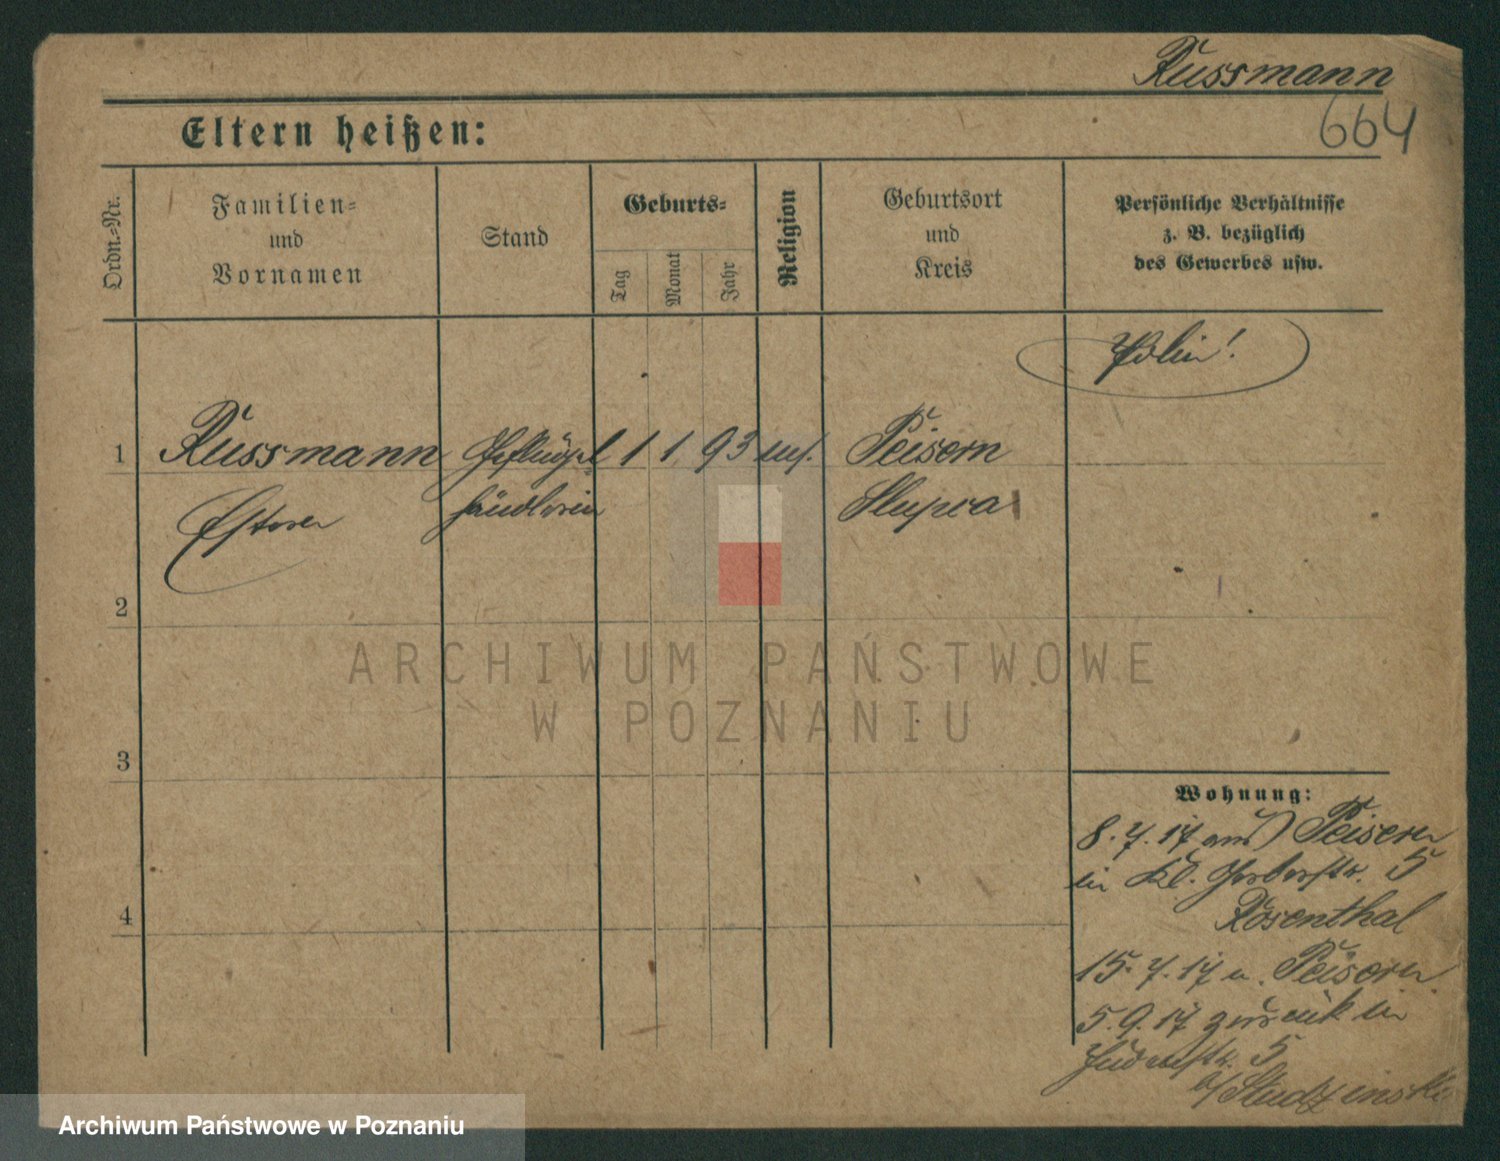 Russmann
664
Eltern heißen:
Ordn.-Nr.
Familien-
und
Vornamen
Stand
Geburts-
Tag
Monat
Jahr
Religion
Geburtsort
und
Kreis
Persönliche Verhältnisse
z. B. bezüglich
des Gewerbes usw.
Polin!
1 Russmann Geflügel 1 1 93 Peisern
händlerin Slupca
2
3
4
Wohnung:
8.7.17 aus Peisern
in Kl. Gerberstr. 5
Rosenthal
15.7.17 n. Peisern.
5.9.17 zurück in
Judenstr. 5
b/Studzinski
ARCHIWUM PAŃSTWOWE
W POZNANIU
Archiwum Państwowe w Poznaniu